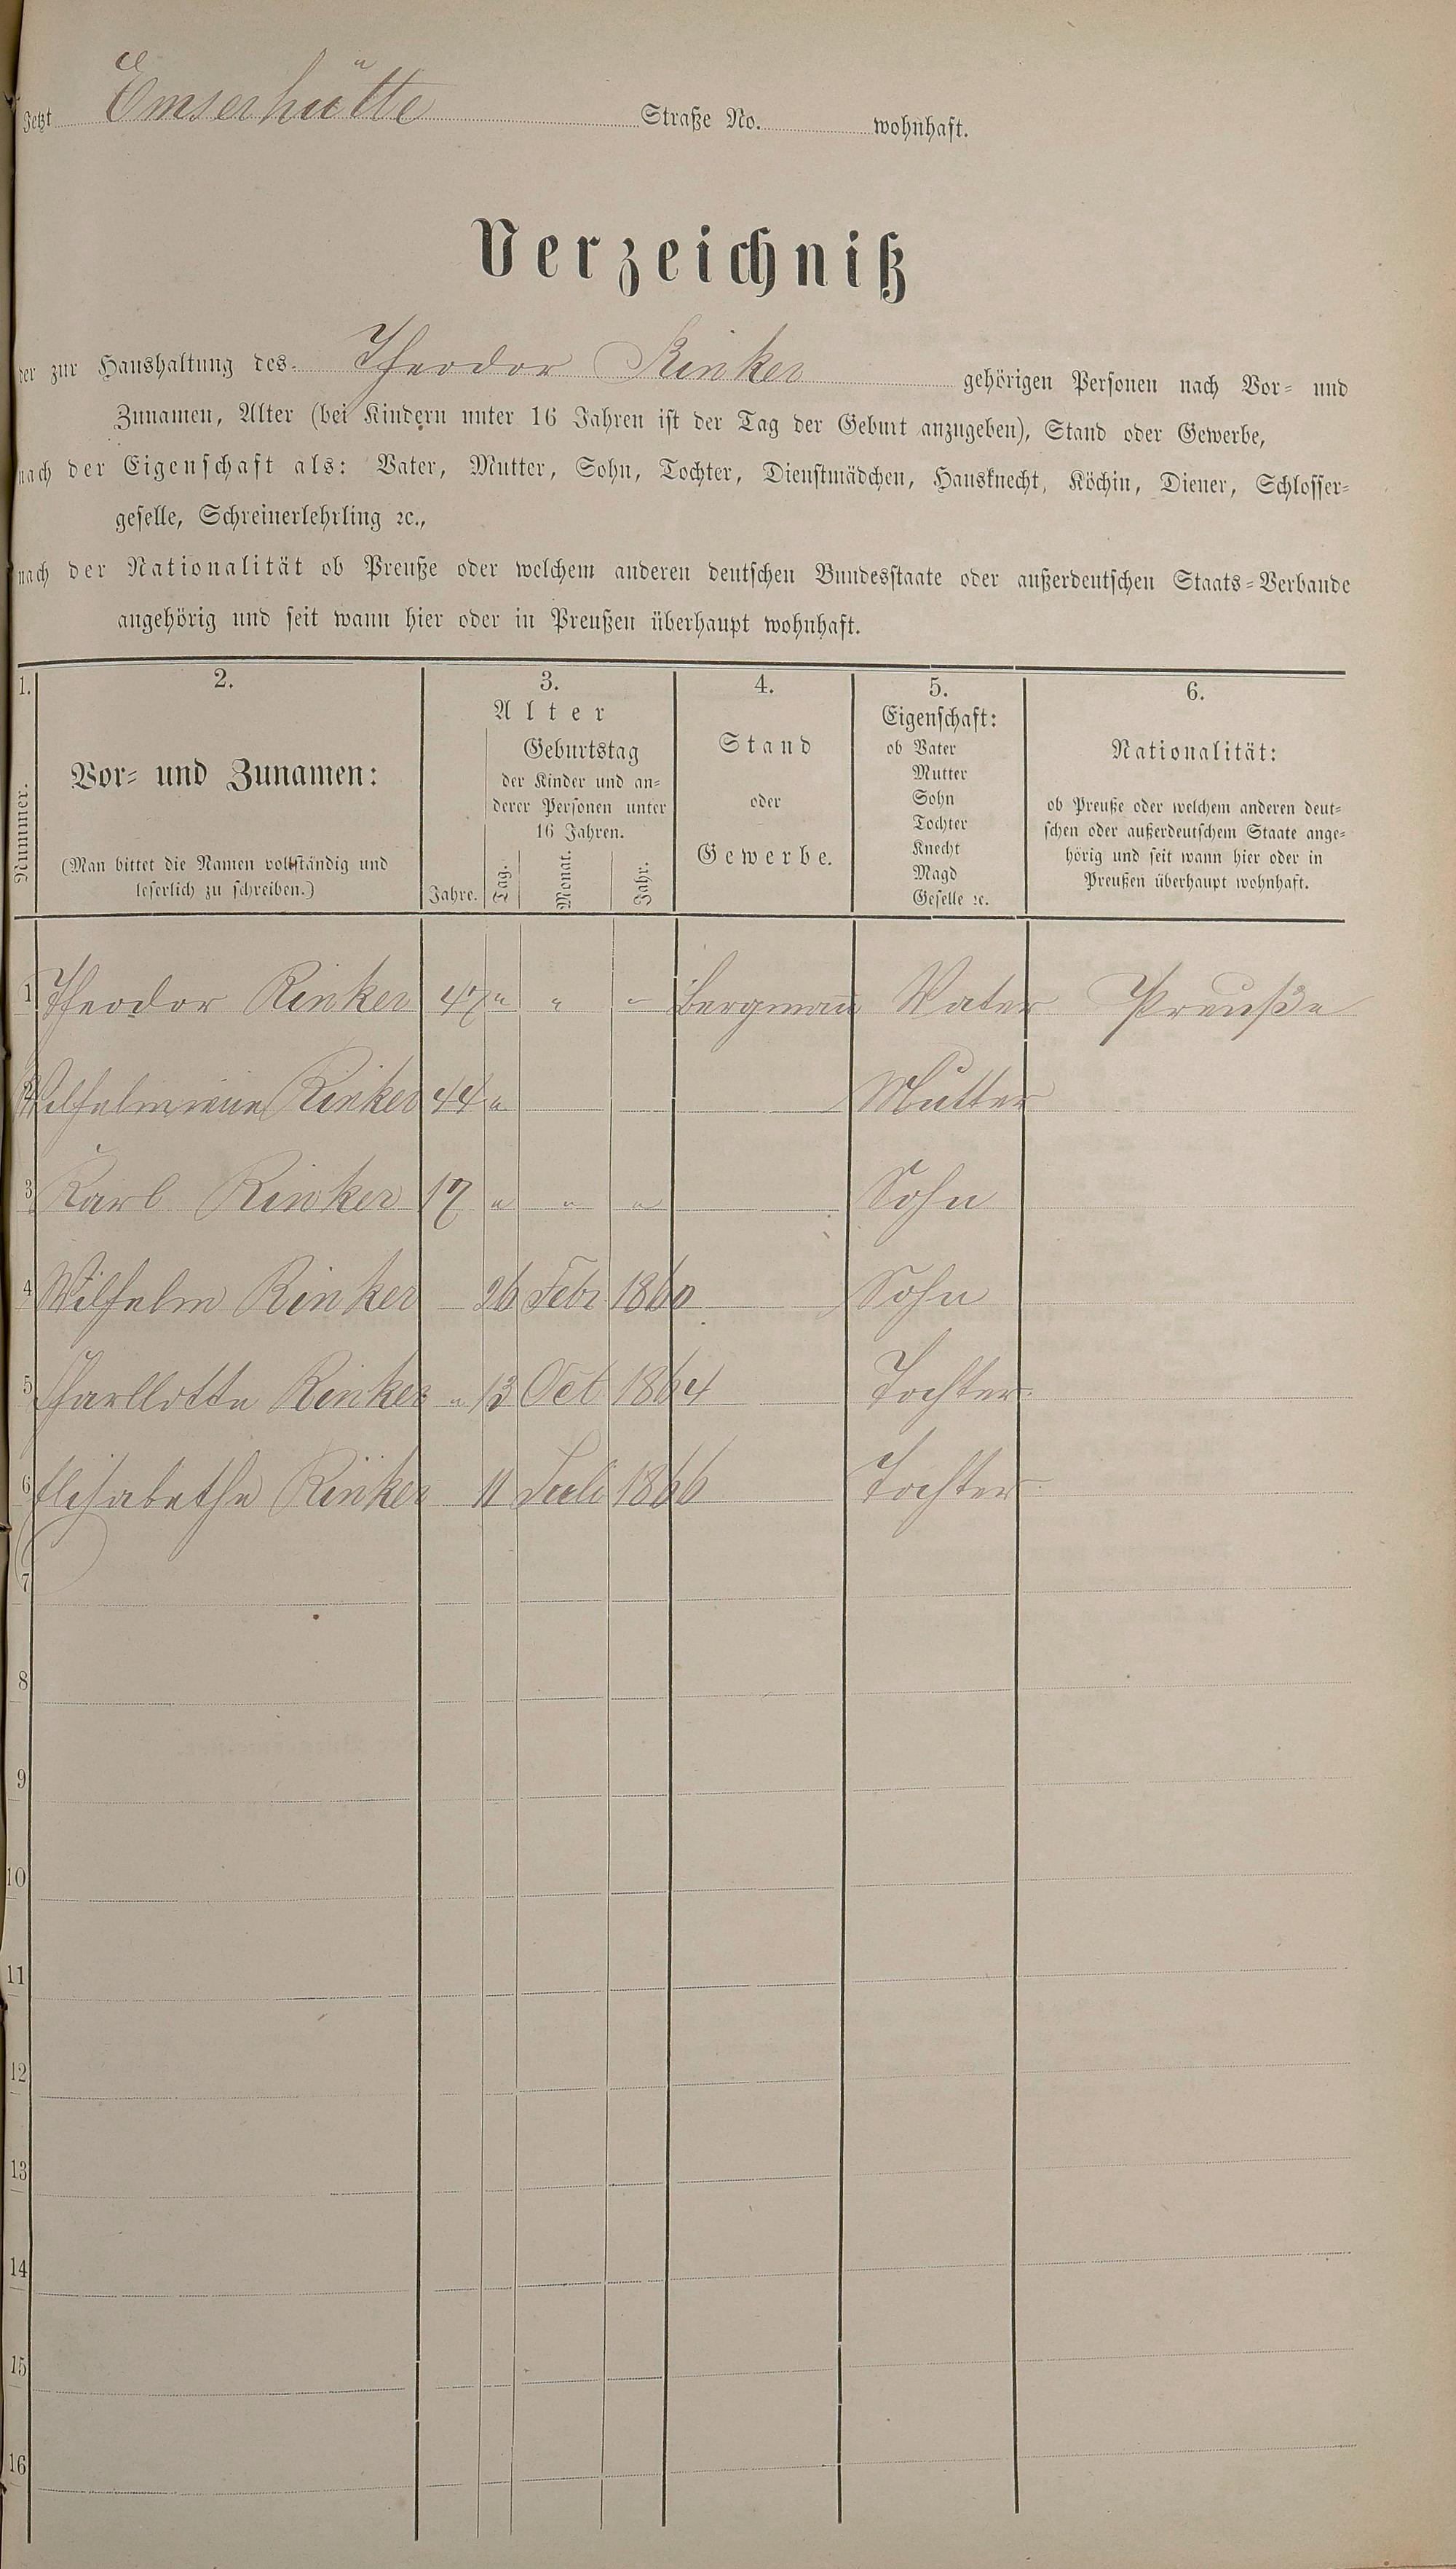 Jetzt Emserhütte Straße No. wohnhaft.
Verzeichniß
der zur Haushaltung des Theodor Rinker gehörigen Personen nach Vor- und
Zunamen, Alter (bei Kindern unter 16 Jahren ist der Tag der Geburt anzugeben), Stand oder Gewerbe,
nach der Eigenschaft als: Vater, Mutter, Sohn, Tochter, Dienstmädchen, Hausknecht, Köchin, Diener, Schlosser-
geselle, Schreinerlehrling ꝛc.,
nach der Nationalität ob Preuße oder welchem anderen deutschen Bundesstaate oder außerdeutschen Staats-Verbande
angehörig und seit wann hier oder in Preußen überhaupt wohnhaft.
1.
Nummer.
2.
Vor- und Zunamen:
(Man bittet die Namen vollständig und
leserlich zu schreiben.)
3.
Alter
Jahre.
Geburtstag
der Kinder und an-
derer Personen unter
16 Jahren.
Tag. Monat. Jahr.
4.
Stand
oder
Gewerbe.
5.
Eigenschaft:
ob Vater
Mutter
Sohn
Tochter
Knecht
Magd
Geselle ꝛc.
6.
Nationalität:
ob Preuße oder welchem anderen deut-
schen oder außerdeutschem Staate ange-
hörig und seit wann hier oder in
Preußen überhaupt wohnhaft.
1 Theodor Rinker 47 " " " Bergmañ Vater Preuße
2 Wilhelmiene Rinker 44 " Mutter
3 Karl Rinker 17 " " " Sohn
4 Wilhelm Rinker 26 Febr 1860 Sohn
5 Charllotte Rinker " 13 Oct 1864 Tochter
6 Elisabethe Rinker 11 Juli 1866 Tochter
7
8
9
10
11
12
13
14
15
16